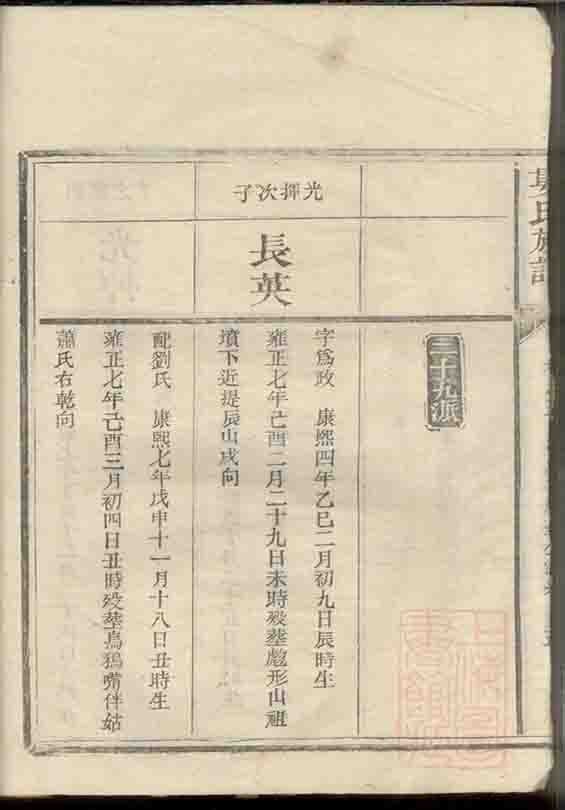 氏族譜
三十九派
光揮次子
長英
字為政　康熙四年乙巳二月初九日辰時生
雍正七年己酉二月二十九日未時歿塟彪形山祖
墳下近堤辰山戌向
配劉氏　康熙七年戊申十一月十八日丑時生
雍正七年己酉三月初四日丑時歿塟烏鴉嘴伴姑
蕭氏右乾向